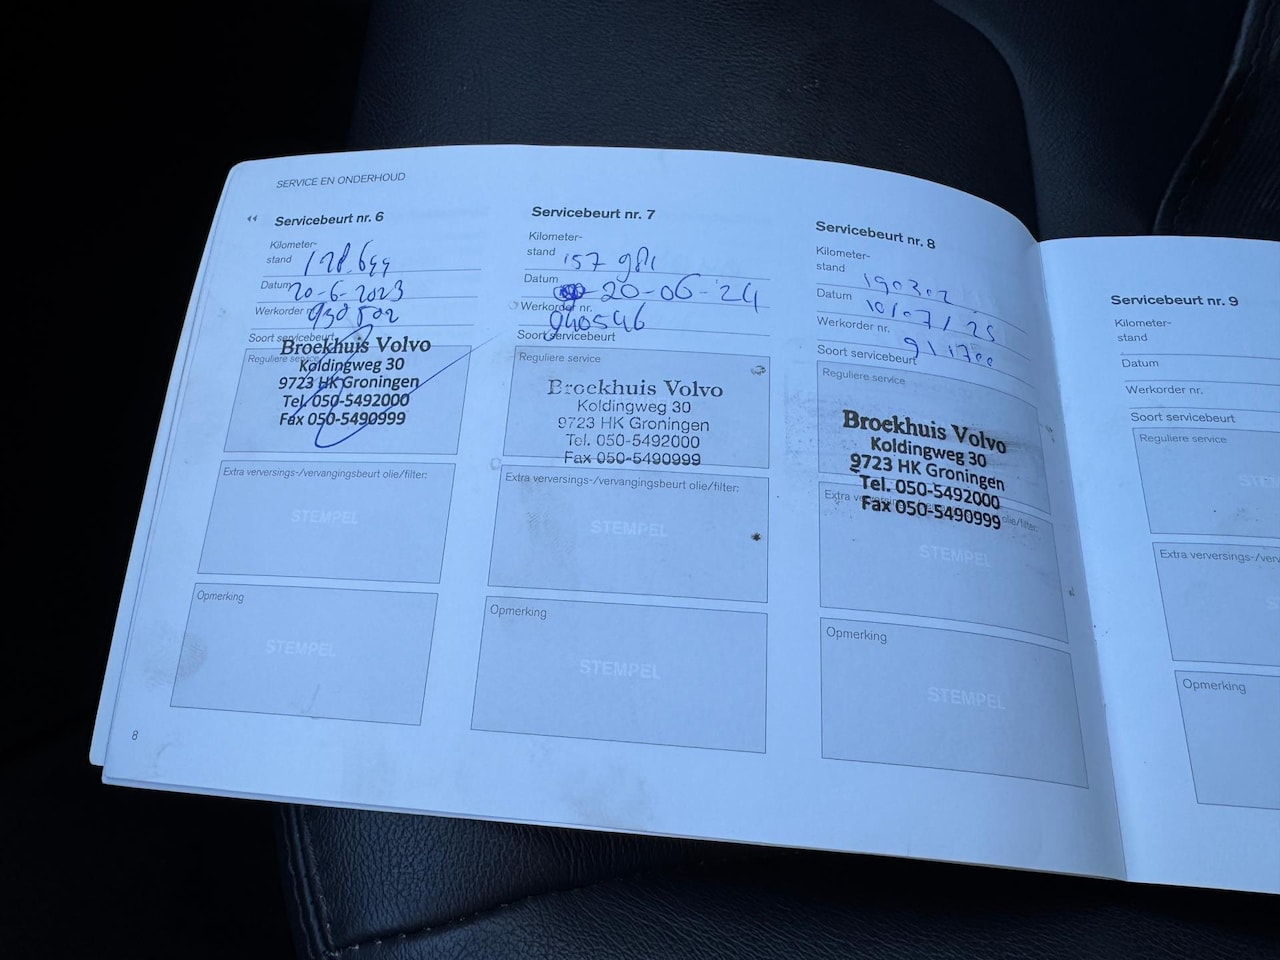 SERVICE EN ONDERHOUD
Servicebeurt nr. 6
Kilometer-
stand 128.644
Datum 20-6-2023
Werkorder nr.
Soort servicebeurt
Reguliere service
Broekhuis Volvo
Koldingweg 30
9723 HK Groningen
Tel. 050-5492000
Fax 050-5490999
Extra verversings-/vervangingsbeurt olie/filter:
STEMPEL
Opmerking
STEMPEL
8
Servicebeurt nr. 7
Kilometer-
stand 157 981
Datum 20-06-'24
Werkorder nr. 940546
Soort servicebeurt
Reguliere service
Broekhuis Volvo
Koldingweg 30
9723 HK Groningen
Tel. 050-5492000
Fax 050-5490999
Extra verversings-/vervangingsbeurt olie/filter:
STEMPEL
Opmerking
STEMPEL
Servicebeurt nr. 8
Kilometer-
stand 190302
Datum 10/07/25
Werkorder nr. 911700
Soort servicebeurt
Reguliere service
Broekhuis Volvo
Koldingweg 30
9723 HK Groningen
Tel. 050-5492000
Fax 050-5490999
Extra olie/filter:
STEMPEL
Opmerking
STEMPEL
Servicebeurt nr. 9
Kilometer-
stand
Datum
Werkorder nr.
Soort servicebeurt
Reguliere service
STEM
Extra verversings-/verv
S
Opmerking